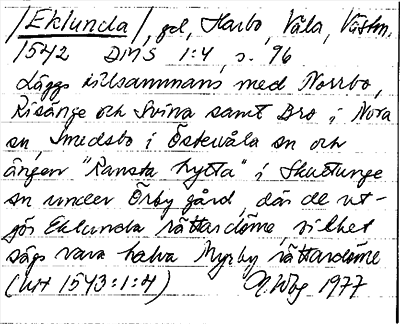 /Eklunda/, gd, Harbo, Våla, Västm.
1542 DMS 1:4, s. 96
Läggs tillsammans med Norrbo,
Risänge och Svina samt Bro i Nora
sn, Smedsbo i Östervåla sn och
ängen "Ransta hytta" i Skuttunge
sn under Örby gård, där de ut-
gör Eklunda rättardöme, vilket
sägs vara halva Myrby rättardöme
(hrt 1543:1:4) 1977